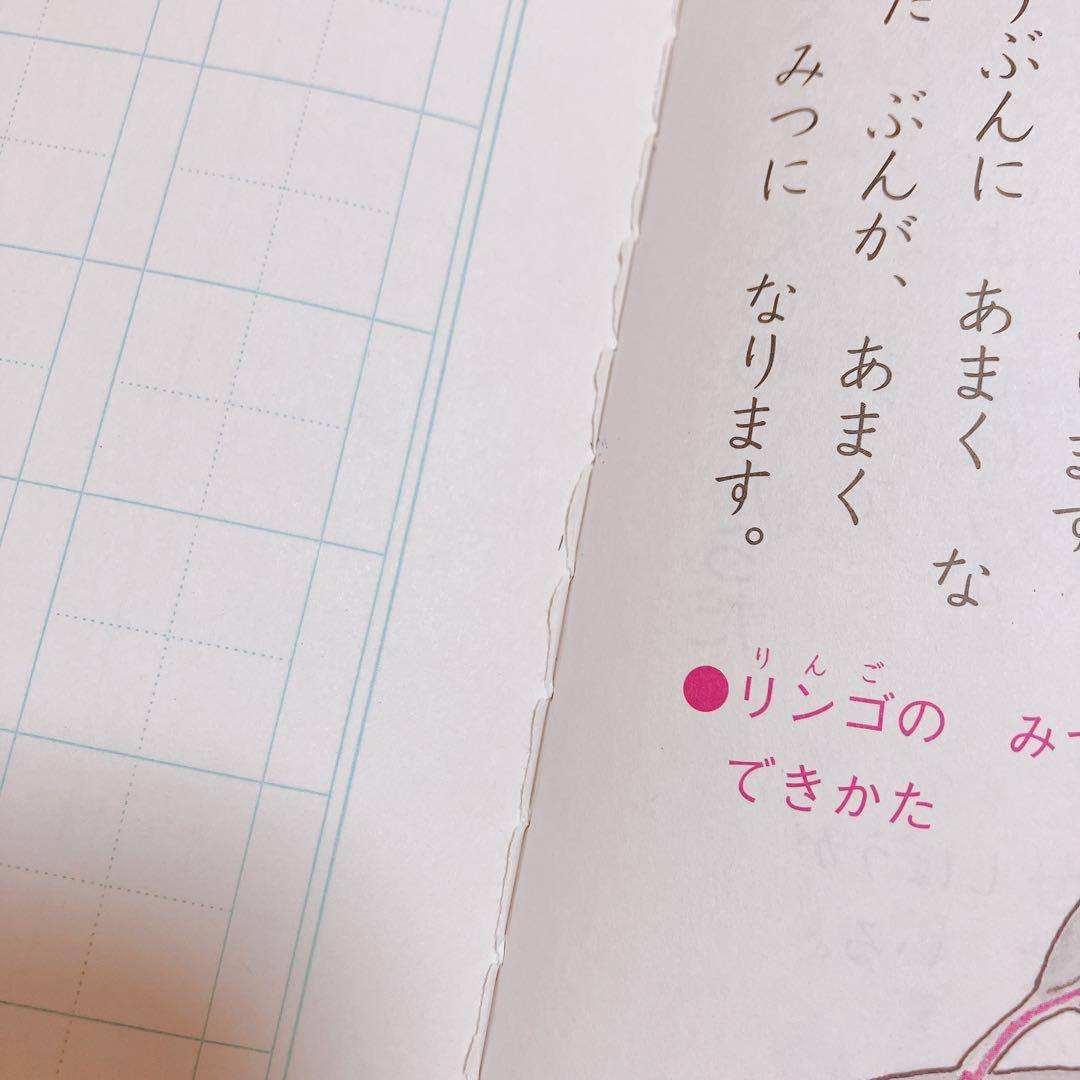 ます
ぶんに あまく な
た ぶんが、あまく
みつに なります。
りんご
●リンゴの み
できかた